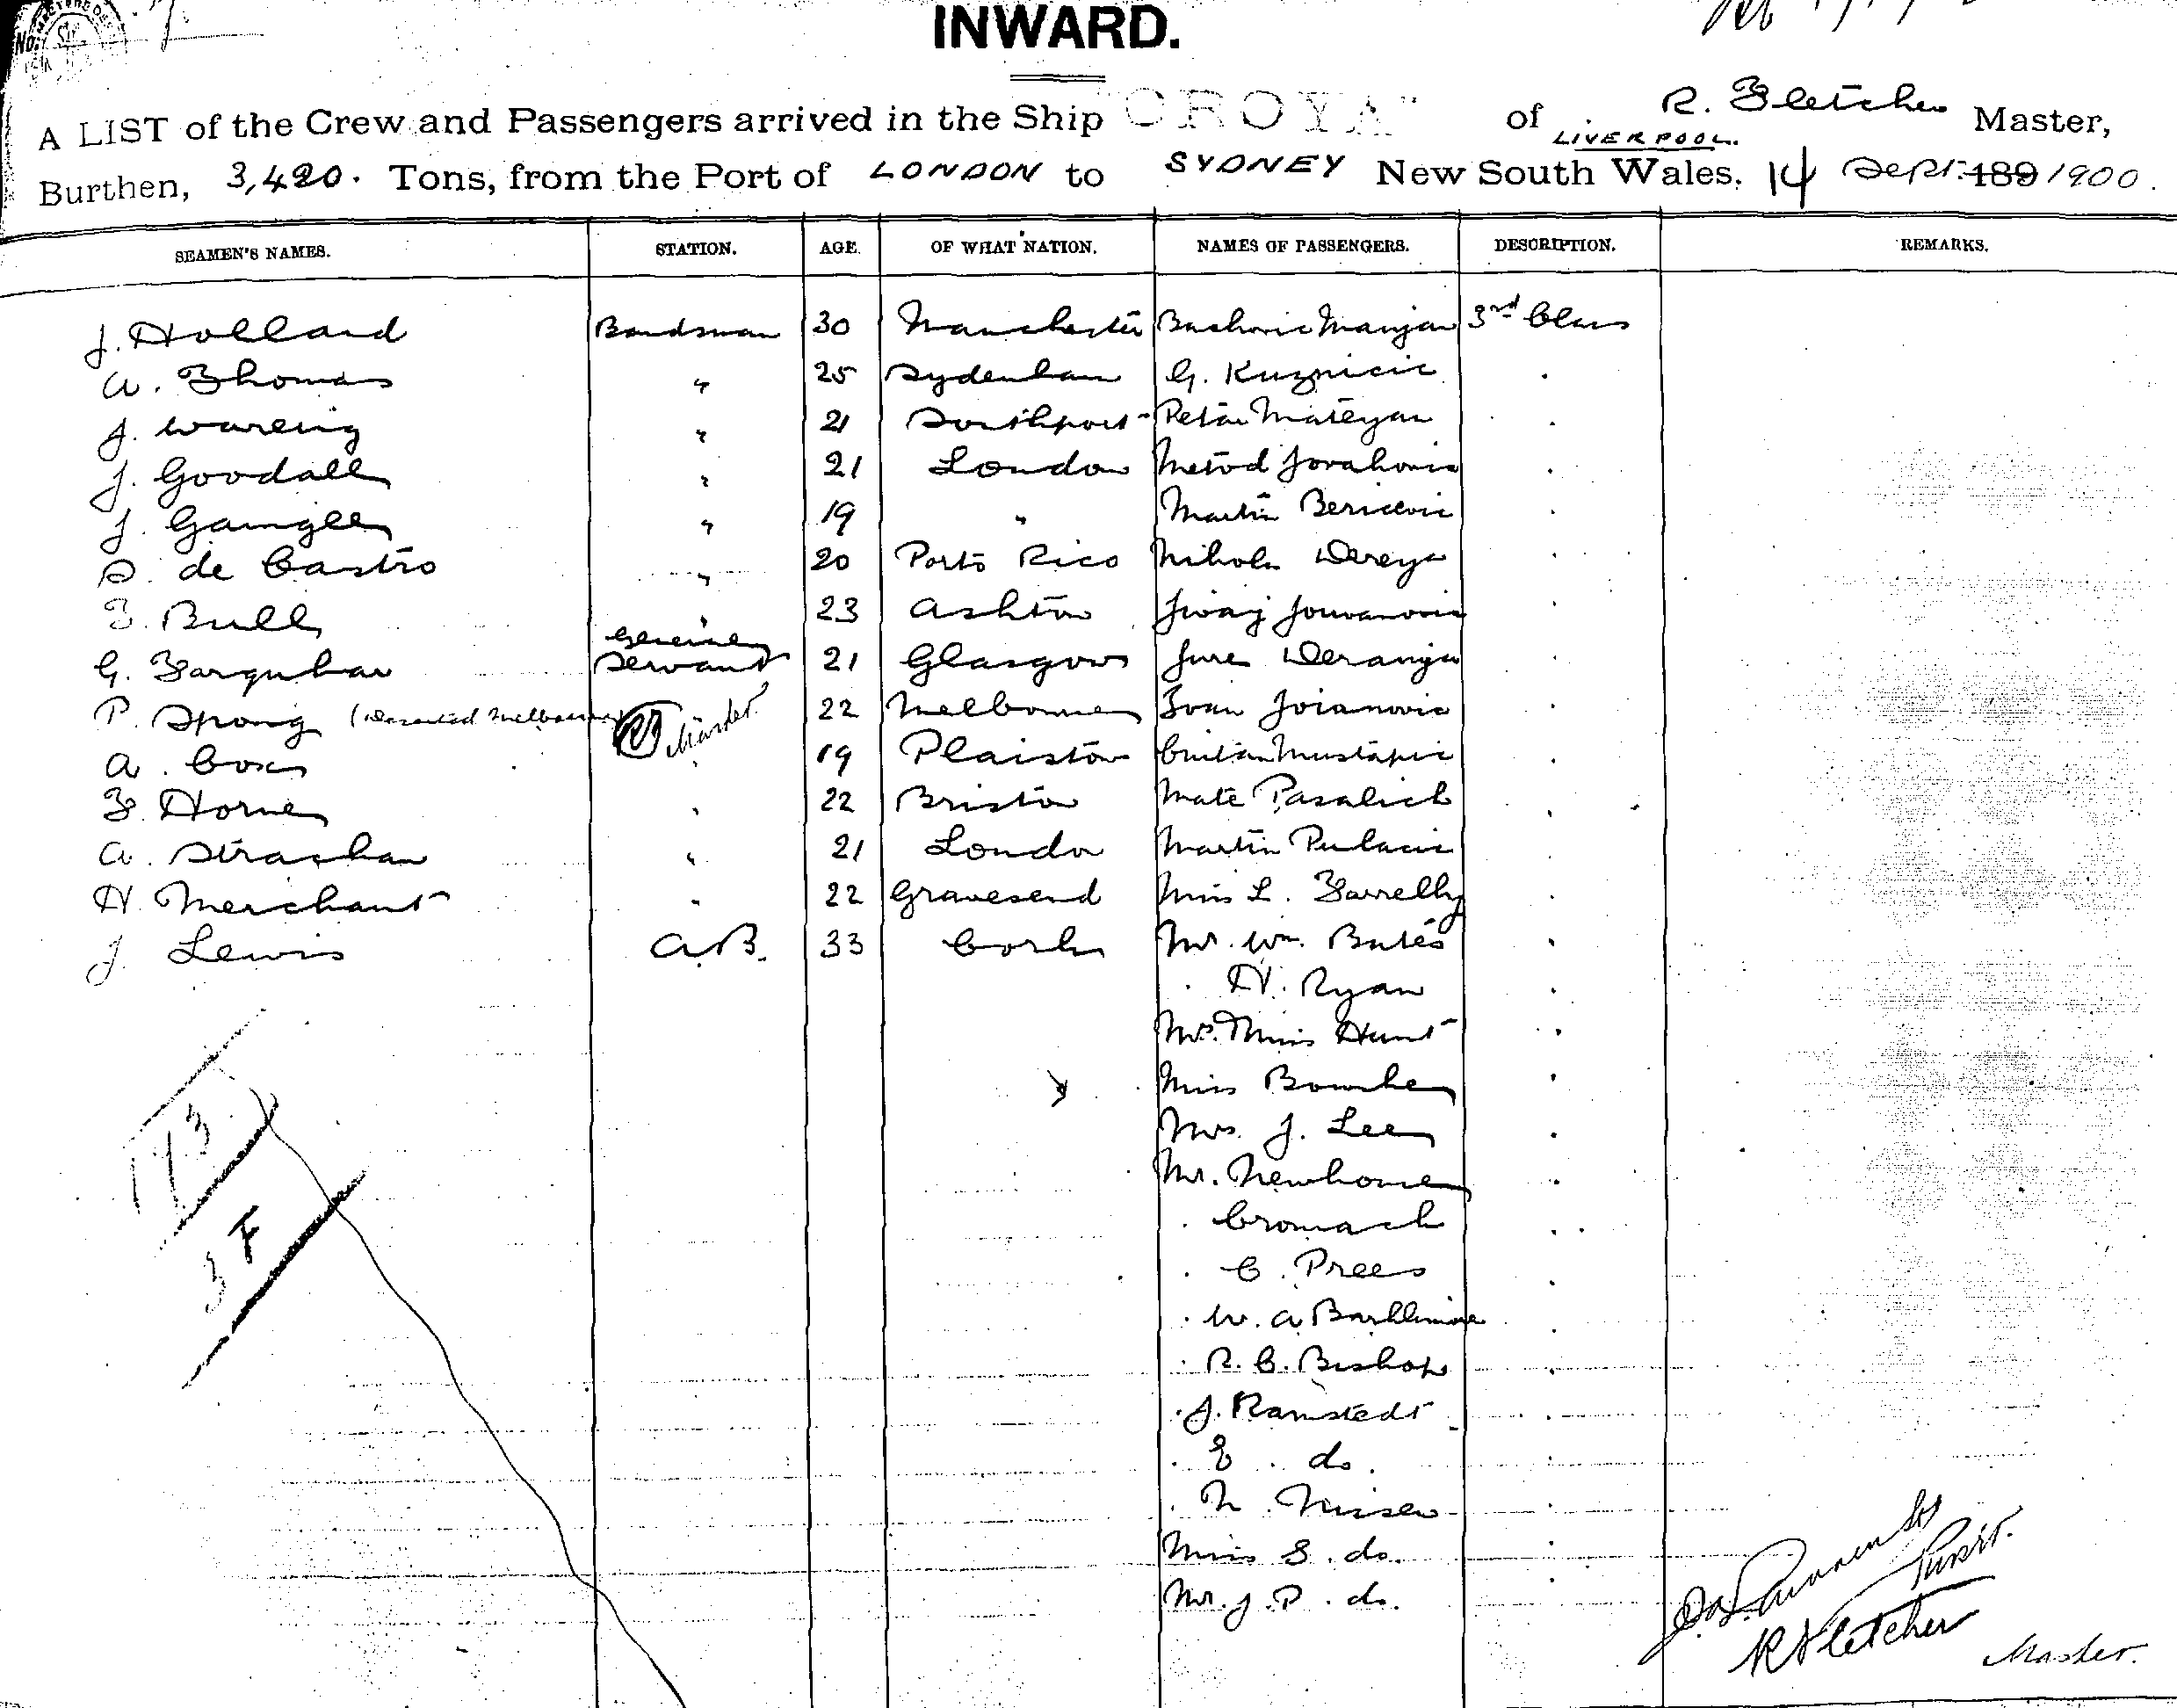 No.
INWARD.
A LIST of the Crew and Passengers arrived in the Ship "OROYA" of LIVERPOOL. R. Fletcher Master,
Burthen, 3,420. Tons, from the Port of LONDON to SYDNEY New South Wales, 14 Sept. 189 1900.
SEAMEN'S NAMES. STATION. AGE. OF WHAT NATION. NAMES OF PASSENGERS. DESCRIPTION. REMARKS.
J. Holland Bandsman 30 Manchester Manjan 3rd Class
A. Thomas " 25 Sydenham G. Kuznicic
J. Wareing " 21 Southport Petar Mateyan
J. Goodall " 21 London Metod
J. Gamgee " 19 " Martin
S. de Castro " 20 Porto Rico Nikola
F. Bull " 23 Ashton
G. Farquhar General Servant 21 Glasgow Jure
P. Spong (Deserted Melbourne) 22 Melbourne Ivan Jovanovic
RF Master.
A. Cox 19 Plaistow Mustapic
F. Horne " 22 Bristow Mate Pasalich
A. Strachan " 21 London Martin
H. Merchant " 22 Gravesend Miss L. Farrelly
J. Lewis A.B. 33 Cork Mr. Wm. Bates
H. Ryan
Mrs. Miss Hunt
Miss Bourke
Mrs. J. Lee
Mr. Newhouse
Cromach
C. Prees
W. A.
R. C. Bishop
J. Ramstedt
E. do.
N. Nissen
Miss S. do.
Mr. J. P. do.
173
3 F
Purser.
R Fletcher
Master.